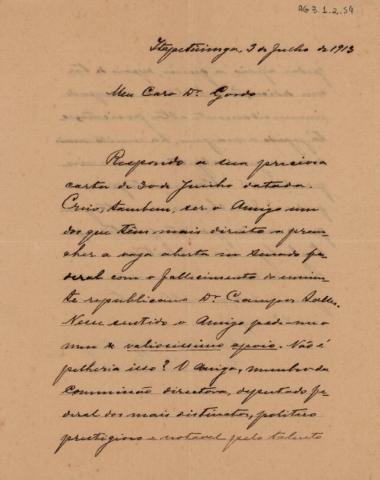 AG 3.1.2.59
Itapetininga, 3 de Julho de 1913
Meu Caro Dr. Gordo
Respondo a sua preciosa
carta de 30 de Junho datada.
Creio, tambem, ser o Amigo um
dos que têm mais direito a preen-
cher a vaga aberta no senado fe-
deral com o fallecimento do eminen-
te republicano Dr. Campos Salles.
Nesse sentido o Amigo pede-me o
meu valiosissimo apoio. Não é
pilheria isso? O Amigo, membro da
Commissão directora, deputado fe-
deral dos mais distinctos, politico
prestigioso e notavel pelo talento